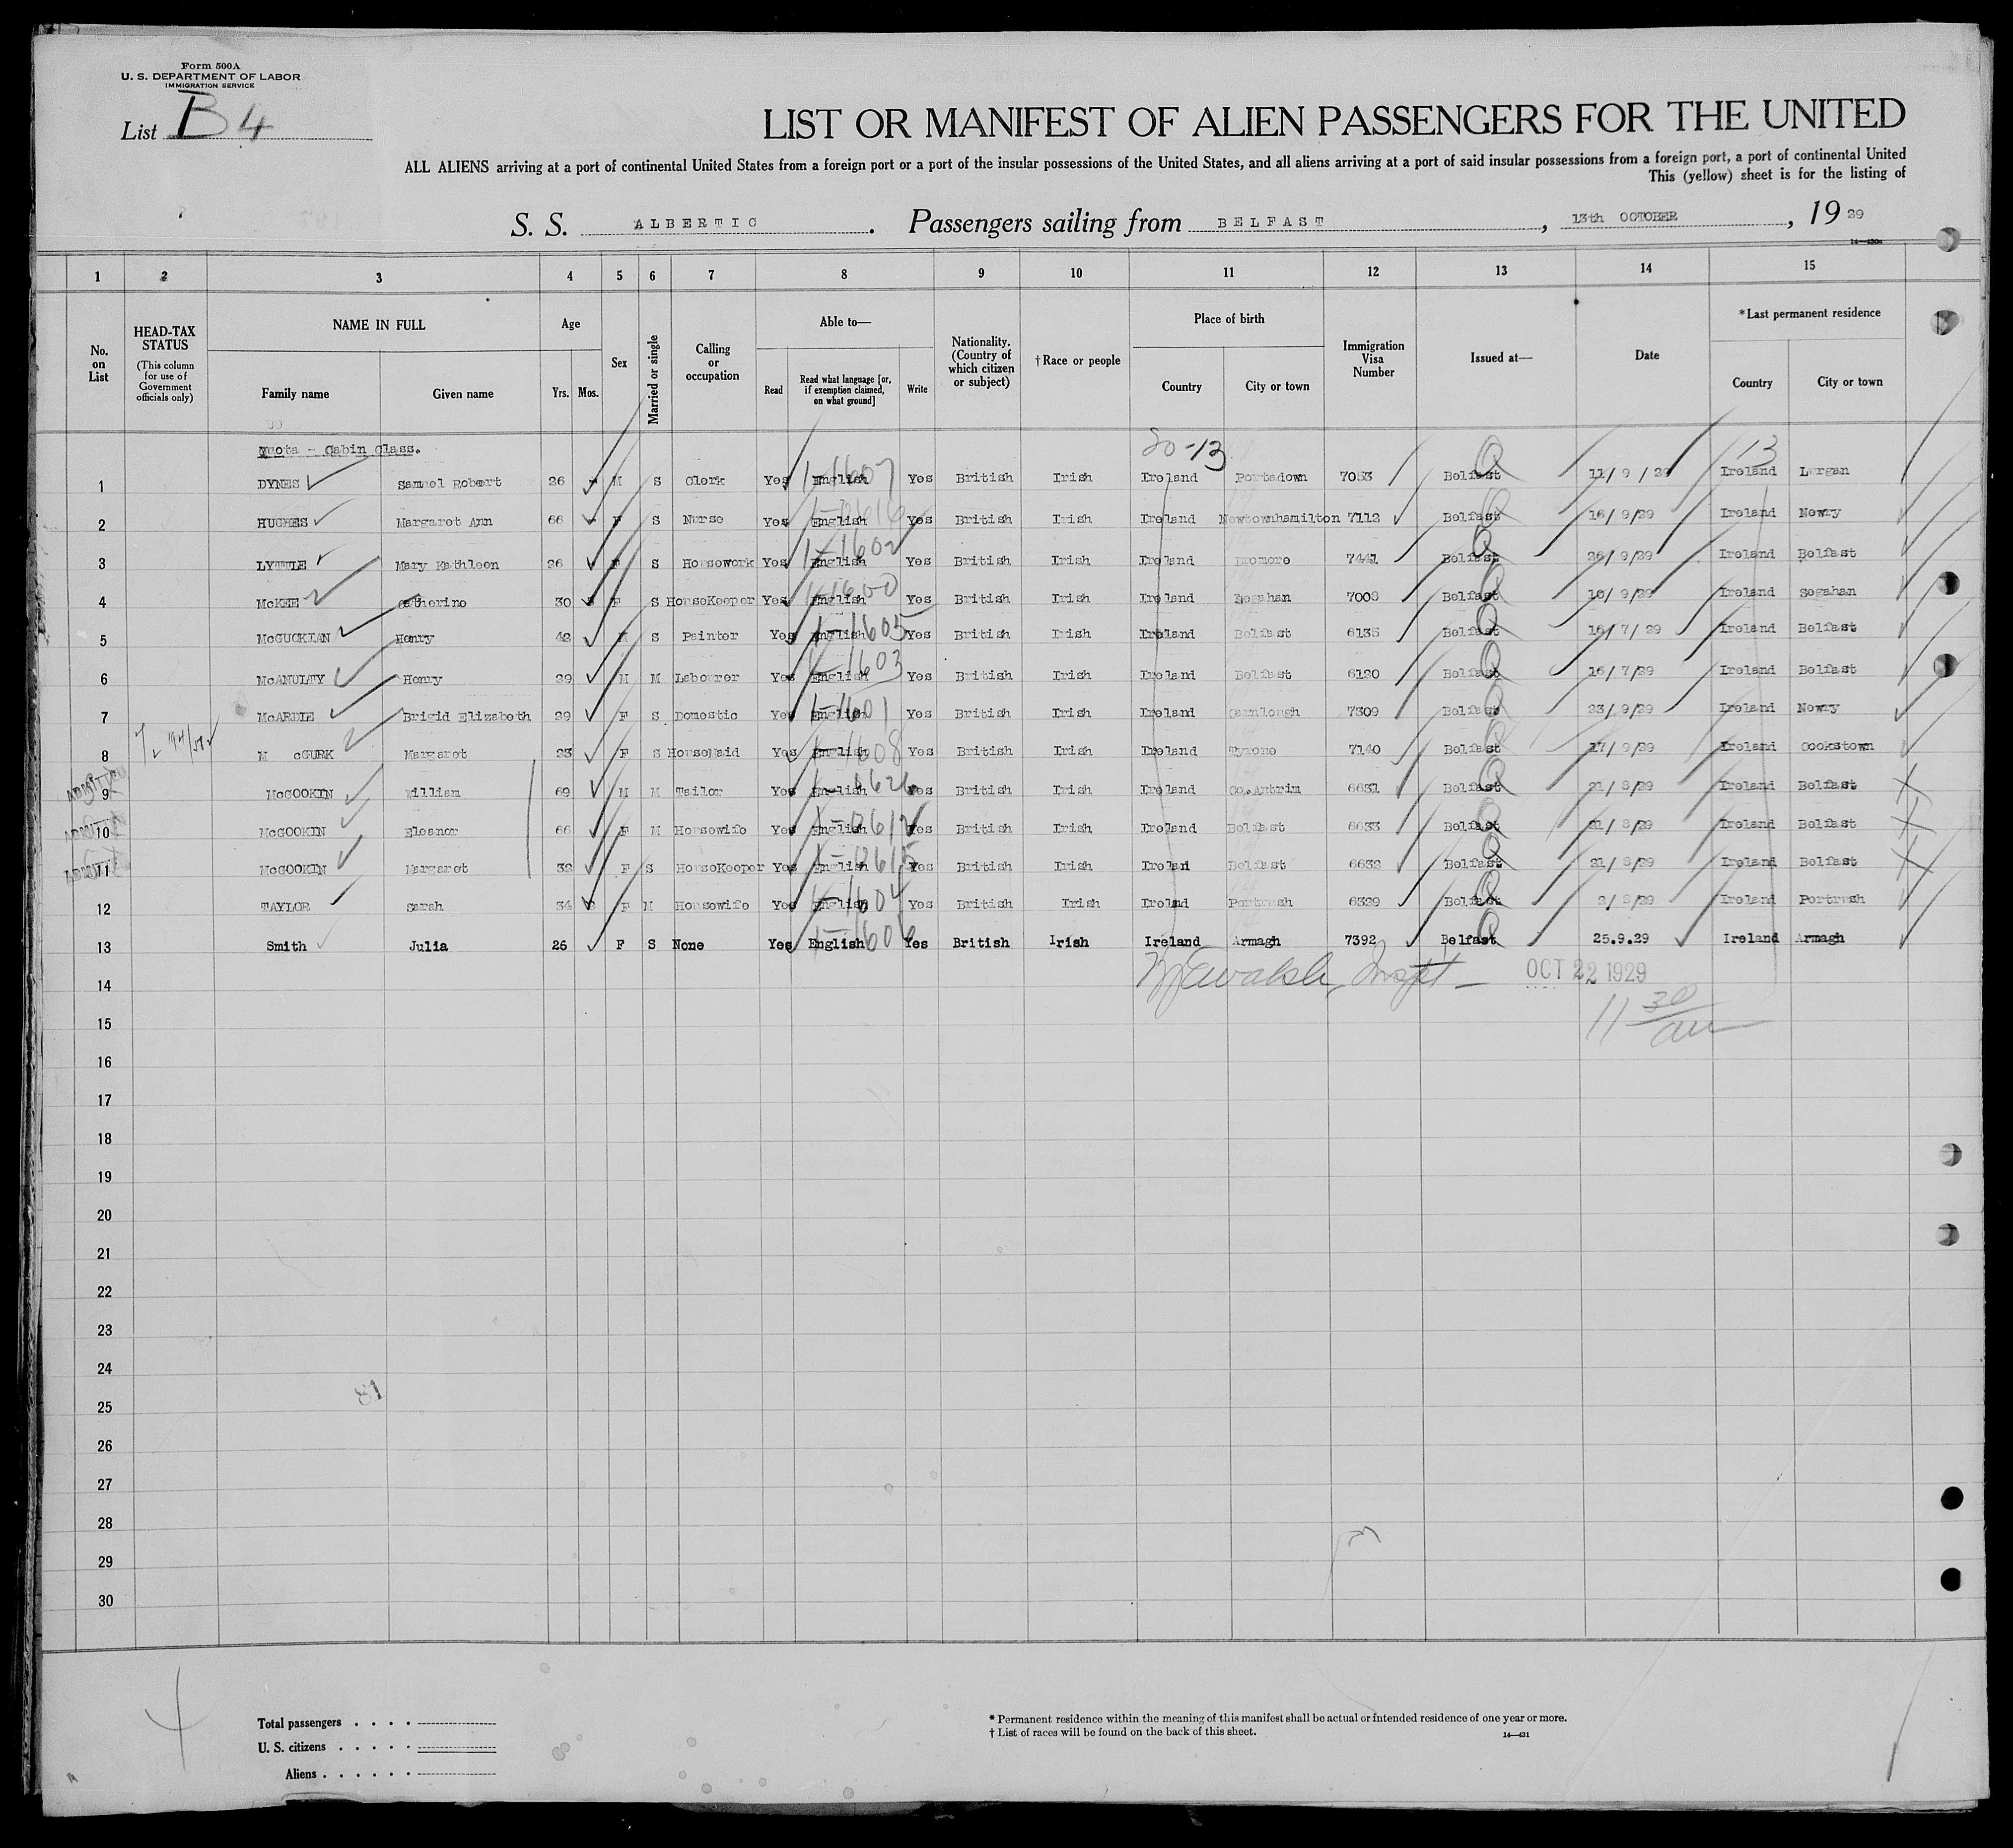 Form 500A
U. S. DEPARTMENT OF LABOR
IMMIGRATION SERVICE
List B4
LIST OR MANIFEST OF ALIEN PASSENGERS FOR THE UNITED
ALL ALIENS arriving at a port of continental United States from a foreign port or a port of the insular possessions of the United States, and all aliens arriving at a port of said insular possessions from a foreign port, a port of continental United
This (yellow) sheet is for the listing of
S. S. ALBERTIC . Passengers sailing from BELFAST , 13th OCTOBER , 19 29
1 2 3 4 5 6 7 8 9 10 11 12 13 14 15
No. on List
HEAD-TAX STATUS (This column for use of Government officials only)
NAME IN FULL Family name Given name
Age Yrs. Mos.
Sex
Married or single
Calling or occupation
Able to— Read Read what language [or, if exemption claimed, on what ground] Write
Nationality. (Country of which citizen or subject)
†Race or people
Place of birth Country City or town
Immigration Visa Number
Issued at—
Date
*Last permanent residence Country City or town
Quota - Cabin Class. 13
1 DYNES Samuel Robert 26 M S Clerk Yes English 1-1607 Yes British Irish Ireland Portadown 7053 Belfast Q 11/ 9 / 29 Ireland Lurgan
2 HUGHES Margaret Ann 66 F S Nurse Yes English Yes British Irish Ireland Newtownhamilton 7112 Belfast Q 16/ 9/29 Ireland Newry
3 LYTTLE Mary Kathleen 26 F S Housework Yes English 1-1602 Yes British Irish Ireland Dromore 7441 Belfast Q 26/ 9/29 Ireland Belfast
4 McKEE Catherine 30 F S HouseKeeper Yes English 1-1600 Yes British Irish Ireland 7008 Belfast Q 10/ 9/29 Ireland Segahan
5 McGUCKIAN Henry 42 M S Painter Yes English 1-1605 Yes British Irish Ireland Belfast 6135 Belfast Q 16/ 7/ 29 Ireland Belfast
6 McANULTY Henry 29 M M Labourer Yes English 1-1603 Yes British Irish Ireland Belfast 6120 Belfast Q 16/ 7/29 Ireland Belfast
7 McARDLE Brigid Elizabeth 29 F S Domestic Yes English 1-1601 Yes British Irish Ireland Carnlough 7309 Belfast Q 23/ 9/29 Ireland Newry
8 M cGURK Margaret 23 F S HouseMaid Yes English 1-1608 Yes British Irish Ireland Tyrone 7140 Belfast Q 17/ 9/29 Ireland Cookstown
ADMITTED 9 McGOOKIN William 69 M M Tailor Yes English Yes British Irish Ireland Co.Antrim 6631 Belfast Q 21/ 8/29 Ireland Belfast
ADMITTED 10 McGOOKIN Eleanor 66 F M Housewife Yes English Yes British Irish Ireland Belfast 6633 Belfast Q 21/ 8/29 Ireland Belfast
ADMITTED 11 McGOOKIN Margaret 32 F S HouseKeeper Yes English Yes British Irish Irelan Belfast 6632 Belfast Q 21/ 8/29 Ireland Belfast
12 TAYLOR Sarah 34 F M Housewife Yes English 1-1604 Yes British Irish Irelnd Portrush 6329 Belfast Q 2/ 8/29 Ireland Portrush
13 Smith Julia 26 F S None Yes English 1-1606 Yes British Irish Ireland Armagh 7392 Belfast Q 25.9.29 Ireland Armagh
14 Inspt OCT 22 1929
15 11 30 am
16
17
18
19
20
21
22
23
24
81
25
26
27
28
29
30
Total passengers . . . .
U. S. citizens . . . . .
Aliens . . . . . .
* Permanent residence within the meaning of this manifest shall be actual or intended residence of one year or more.
† List of races will be found on the back of this sheet. 14—431